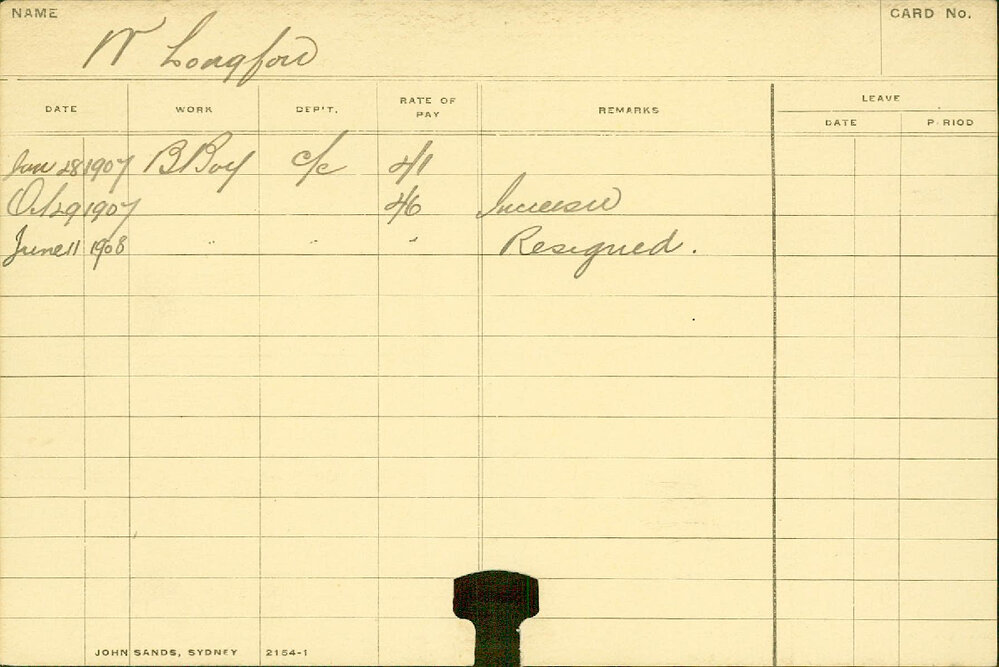 NAME CARD No.
W Longford
DATE WORK DEP'T. RATE OF PAY REMARKS LEAVE
DATE PERIOD
Jan 28 1907 B Boy c/c 4/1
Oct 29 1907 4/6 Increase
June 11 1908 " " " Resigned.
JOHN SANDS, SYDNEY 2154-1